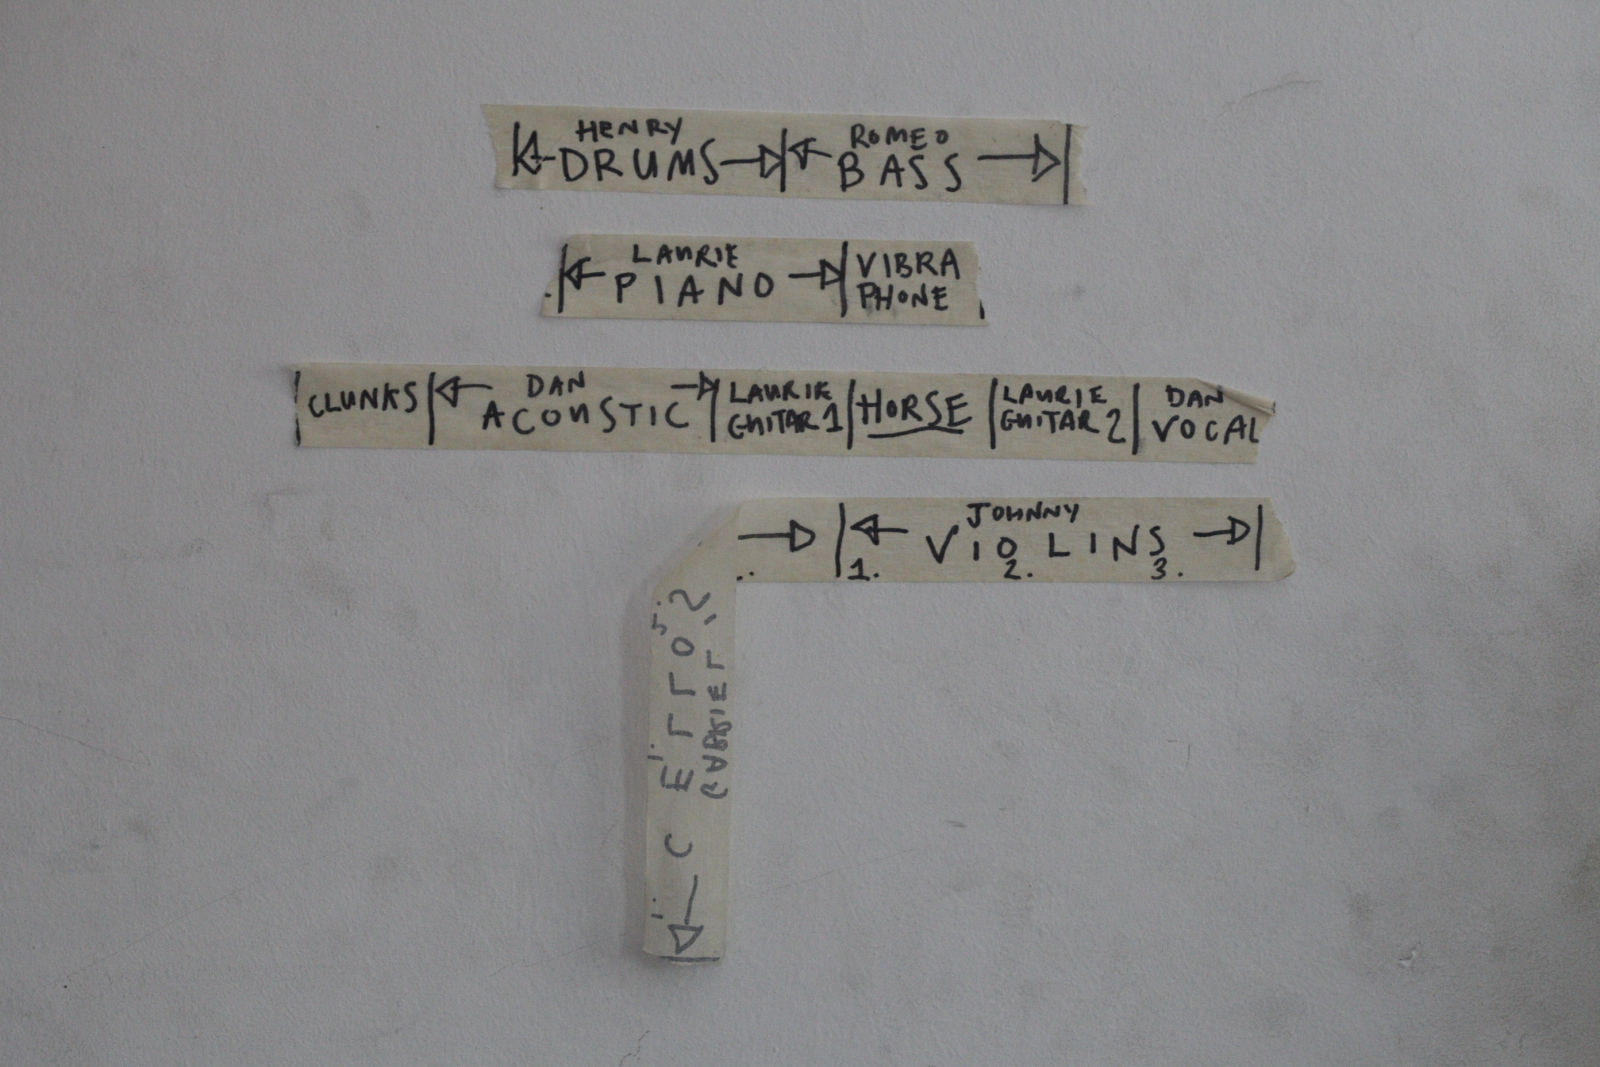 HENRY
DRUMS
ROMEO
BASS
LAURIE
PIANO
VIBRA
PHONE
CLUNKS
DAN
ACOUSTIC
LAURIE
GUITAR 1
HORSE
LAURIE
GUITAR 2
DAN
VOCAL
JOHNNY
VIOLINS
1. 2. 3.
CELLOS